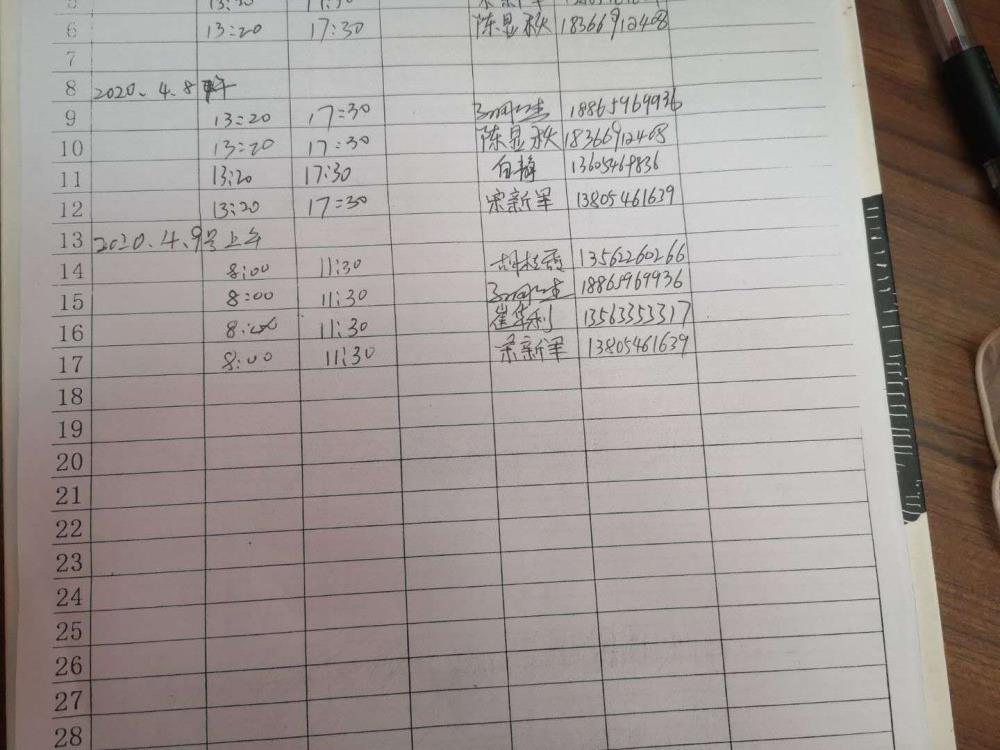 5 13:20 17:30
6 13:20 17:30 陈显秋 18366912408
7
8 2020.4.8
9 13:20 17:30 18865969936
10 13:20 17:30 陈显秋 18366912408
11 13:20 17:30 白梅 13605469836
12 13:20 17:30 宋新军 13805461639
13 2020.4.9号上午
14 8:00 11:30 13562260266
15 8:00 11:30 18865969936
16 8:00 11:30 崔华利 13563353317
17 8:00 11:30 宋新军 13805461639
18
19
20
21
22
23
24
25
26
27
28